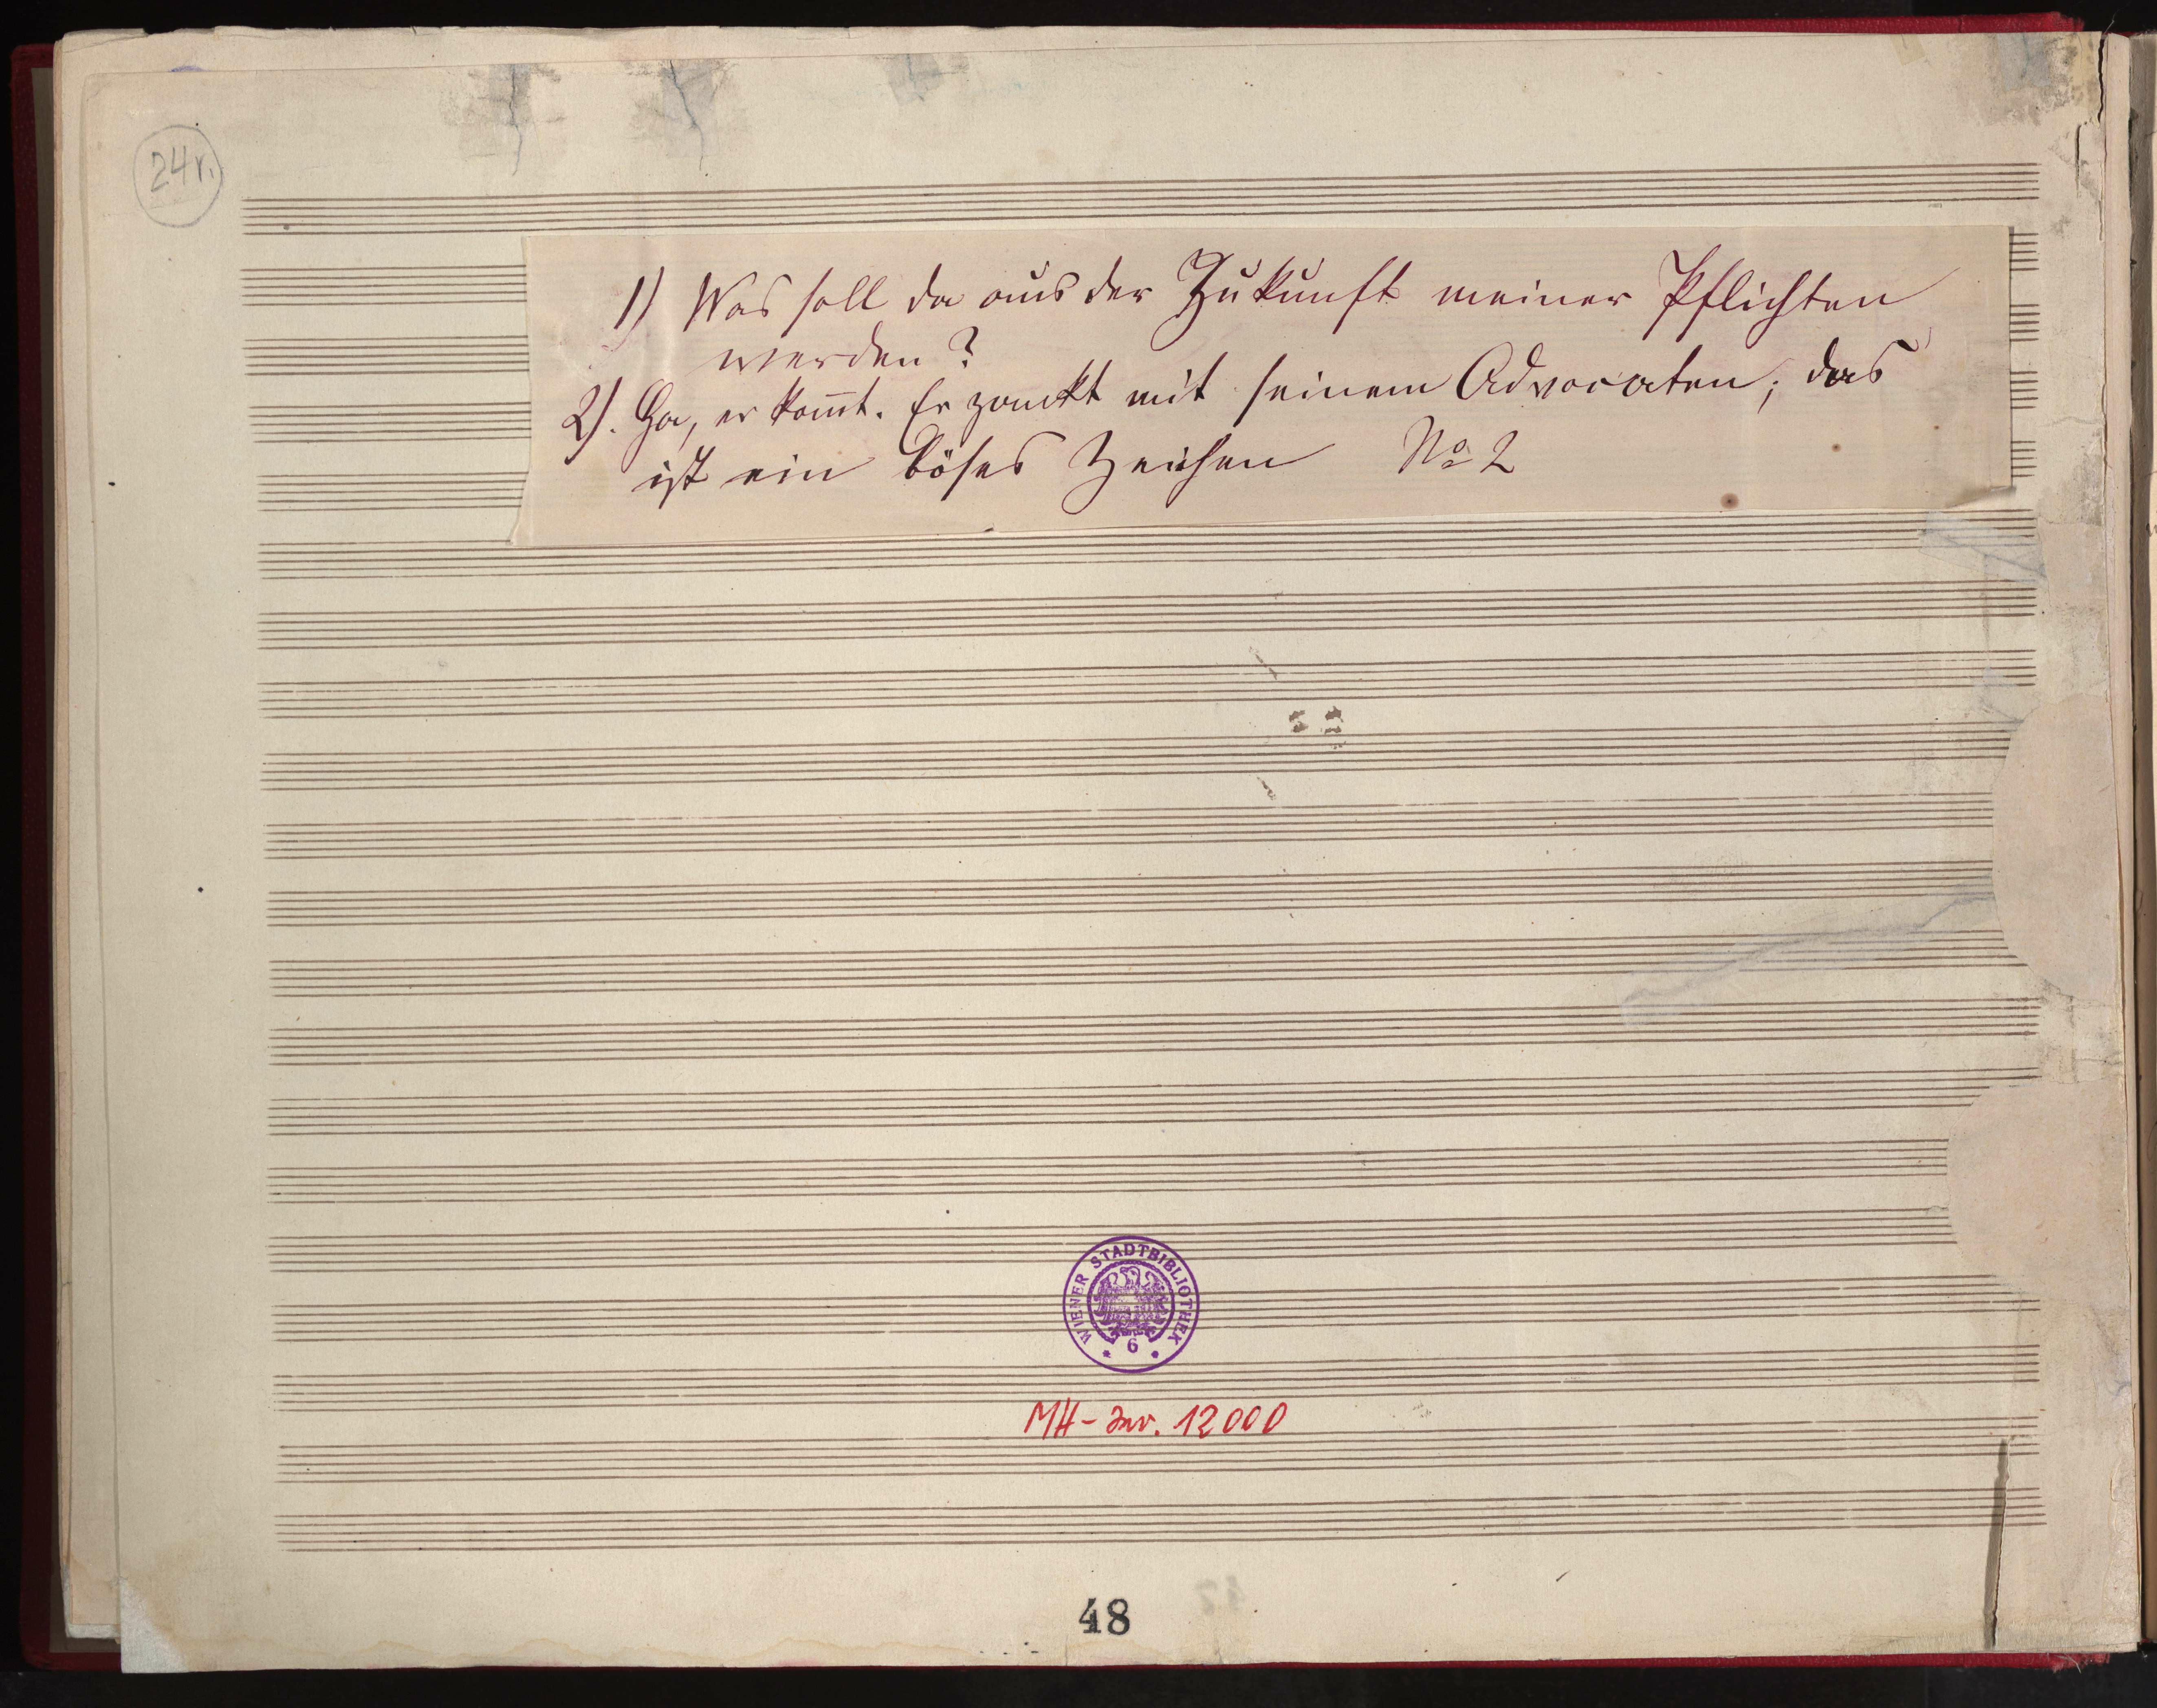 24r.
1) Was soll da aus der Zukunft meiner Pflichten
werden?
2). Ha, er kom̅t. Er zankt mit seinem Advocaten; das
ist ein böses Zeichen No 2
WIENER STADTBIBLIOTHEK
* 6 *
MH-Inv. 12000
48